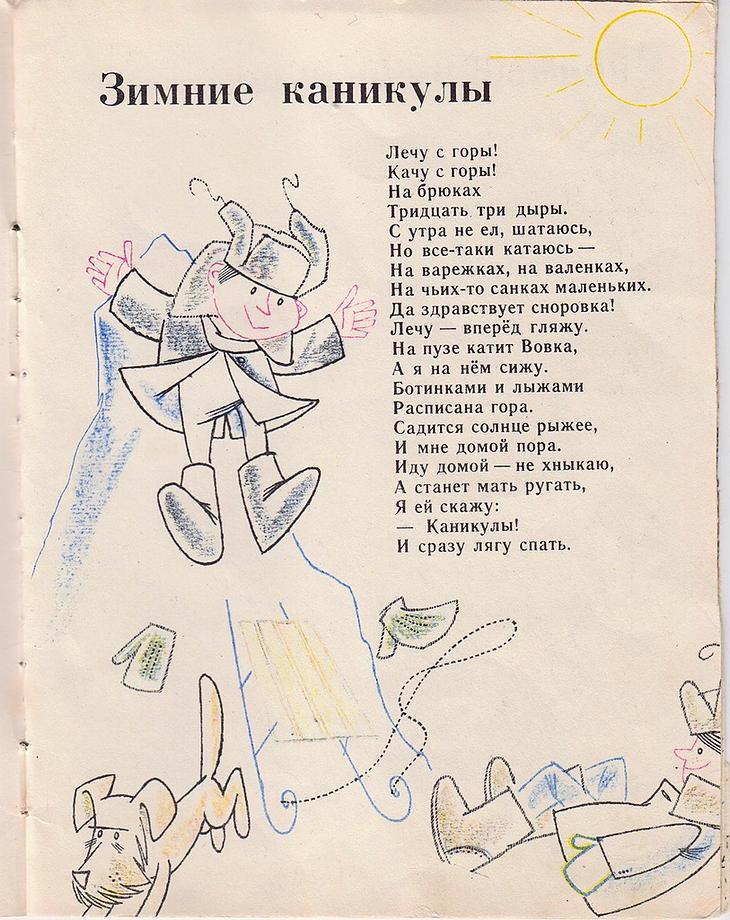 Зимние каникулы
Лечу с горы!
Качу с горы!
На брюках
Тридцать три дыры.
С утра не ел, шатаюсь,
Но все-таки катаюсь —
На варежках, на валенках,
На чьих-то санках маленьких.
Да здравствует сноровка!
Лечу — вперёд гляжу.
На пузе катит Вовка,
А я на нём сижу.
Ботинками и лыжами
Расписана гора.
Садится солнце рыжее,
И мне домой пора.
Иду домой — не хныкаю,
А станет мать ругать,
Я ей скажу:
— Каникулы!
И сразу лягу спать.